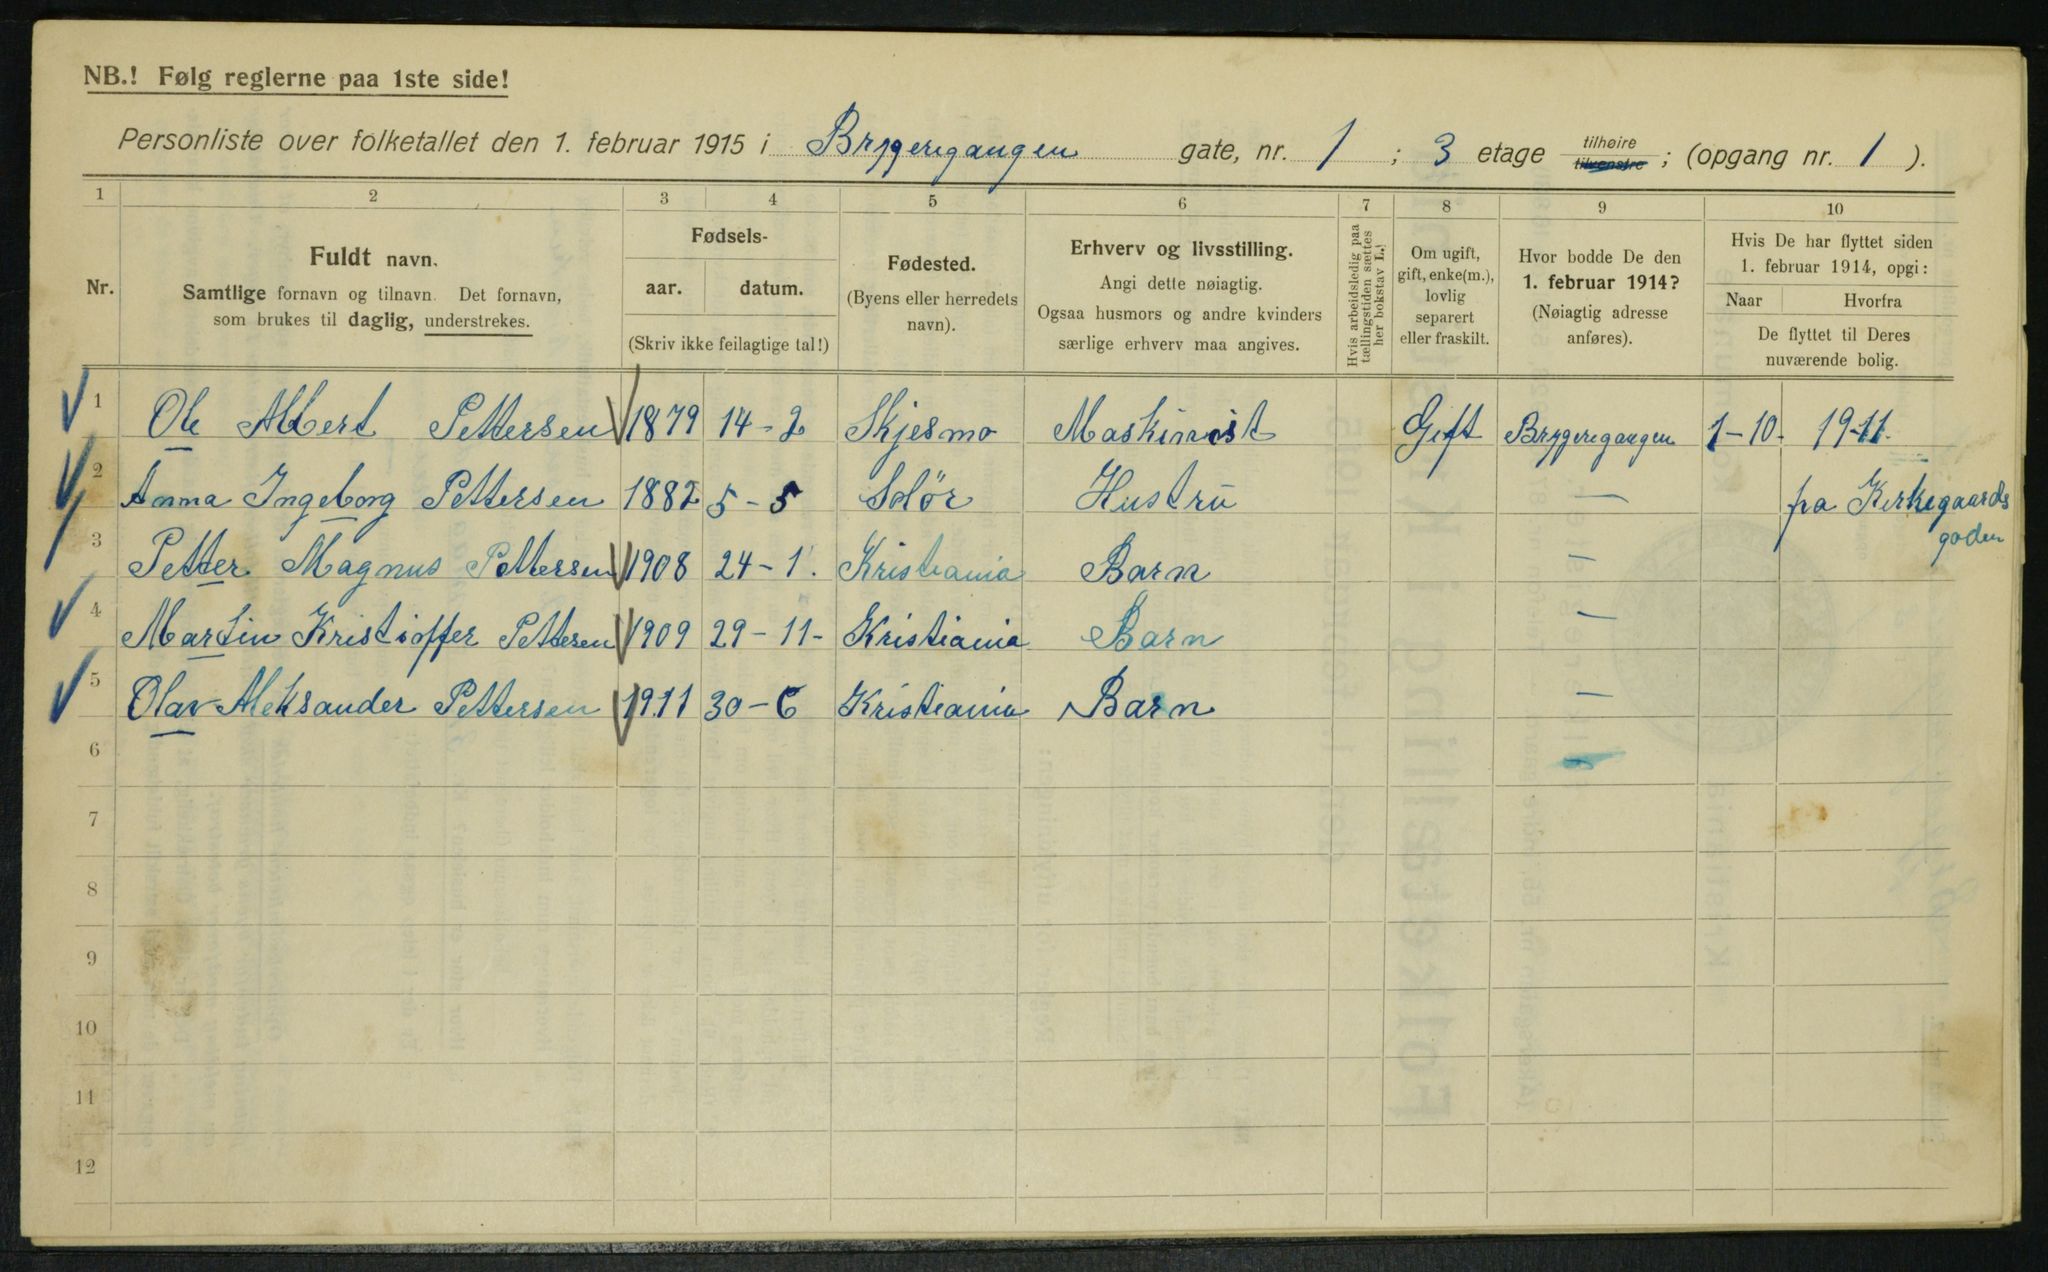 NB.! Følg reglerne paa 1ste side!
Personliste over folketallet den 1. februar 1915 i Bryggeregangen gate, nr. 1 ; 3 etage tilhøire tilvenstre ; (opgang nr. 1 ).
1 2 3 4 5 6 7 8 9 10
Nr.
Fuldt navn.
Samtlige fornavn og tilnavn. Det fornavn,
som brukes til daglig, understrekes.
Fødsels-
aar. datum.
(Skriv ikke feilagtige tal!)
Fødested.
(Byens eller herredets
navn).
Erhverv og livsstilling.
Angi dette nøiagtig.
Ogsaa husmors og andre kvinders
særlige erhverv maa angives.
Hvis arbeidsledig paa
tællingstiden sættes
her bokstav L.!
Om ugift,
gift, enke(m.),
lovlig
separert
eller fraskilt.
Hvor bodde De den
1. februar 1914?
(Nøiagtig adresse
anføres).
Hvis De har flyttet siden
1. februar 1914, opgi:
Naar Hvorfra
De flyttet til Deres
nuværende bolig.
1 Ole Albert Pettersen 1879 14-2 Skjesmo Maskinist Gift Bryggeregangen 1-10- 19-11.
2 Anna Ingeborg Pettersen 1882 5-5 Solör Hustru — fra Kirkegaards
gaden
3 Petter Magnus Pettersen 1908 24-1. Kristiania Barn —
4 Martin Kristioffer Pettersen 1909 29-11- Kristiania Barn —
5 Olav Aleksander Pettersen 1911 30-6 Kristiania Barn —
6
7
8
9
10
11
12